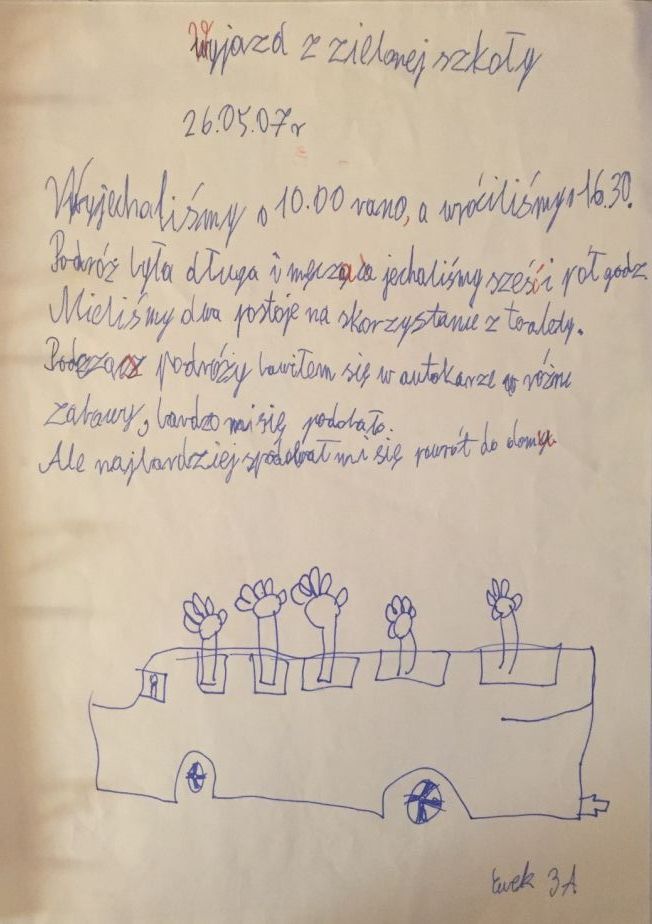 Wyjazd z zielonej szkoły
26.05.07r
Wyjechaliśmy o 10.00 rano, a wróciliśmy o 16.30.
Podróż była długa i męcząca jechaliśmy sześć i pół godz.
Mieliśmy dwa postoje na skorzystanie z toalety.
Podczas podróży bawiłem się w autokarze w różne
zabawy, bardzo mi się podobało.
Ale najbardziej spodobał mi się powrót do domu.
3A